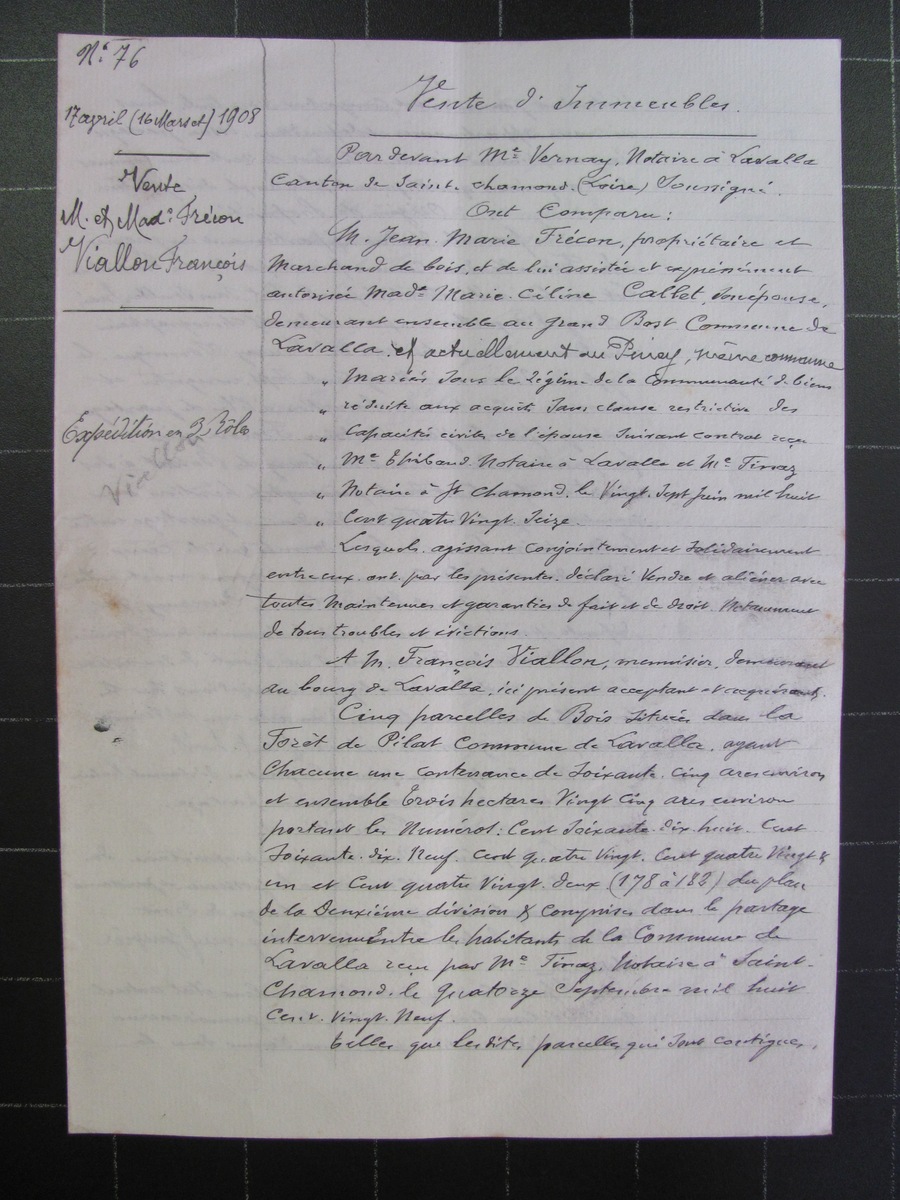 N° 76
17 avril (16 Mars et) 1908
Vente
M. et Made Frécon
Viallon François
Expédition en 3 Rôles
Vente d'Immeubles.
Pardevant Me Vernay, Notaire à Lavalla
Canton de Saint-chamond (Loire) Soussigné.
Ont Comparu :
M. Jean-Marie Frécon, propriétaire et
Marchand de bois, et de lui assistée et expressément
autorisée Made Marie-Céline Callet, son épouse,
demeurant ensemble au grand Bost Commune de
Lavalla. et actuellement au Pinay, même commune
" Mariés sous le régime de la Communauté de biens
" réduite aux acquêts sans clause restrictive des
" Capacités civiles de l'épouse suivant contrat reçu
" Me Notaire à Lavalla et Me Finaz
" Notaire à St Chamond, le Vingt-Sept Juin mil huit
" Cent quatre Vingt-Seize.
Lesquels, agissant conjointement et solidairement
entre eux, ont, par les présentes, déclaré Vendre et aliéner avec
toutes Maintenues et garanties de fait et de droit, Notamment
de tous troubles et évictions.
A M. François Viallon, menuisier, demeurant
au bourg de Lavalla, ici présent acceptant et requérant,
Cinq parcelles de Bois situées dans la
Forêt de Pilat Commune de Lavalla, ayant
Chacune une contenance de Soixante-Cinq ares environ
et ensemble Trois hectares Vingt Cinq ares environ
portant les Numéros : Cent Soixante-dix-huit. Cent
Soixante-dix-Neuf. Cent quatre Vingt. Cent quatre Vingt
un et Cent quatre Vingt-deux (178 à 182) du plan
de la Deuxième division & comprises dans le partage
intervenu Entre les habitants de la Commune de
Lavalla reçu par Me Finaz, Notaire à Saint-
Chamond, le quatorze Septembre mil huit
Cent-Vingt-Neuf.
Telles que les dites parcelles qui sont contigues,